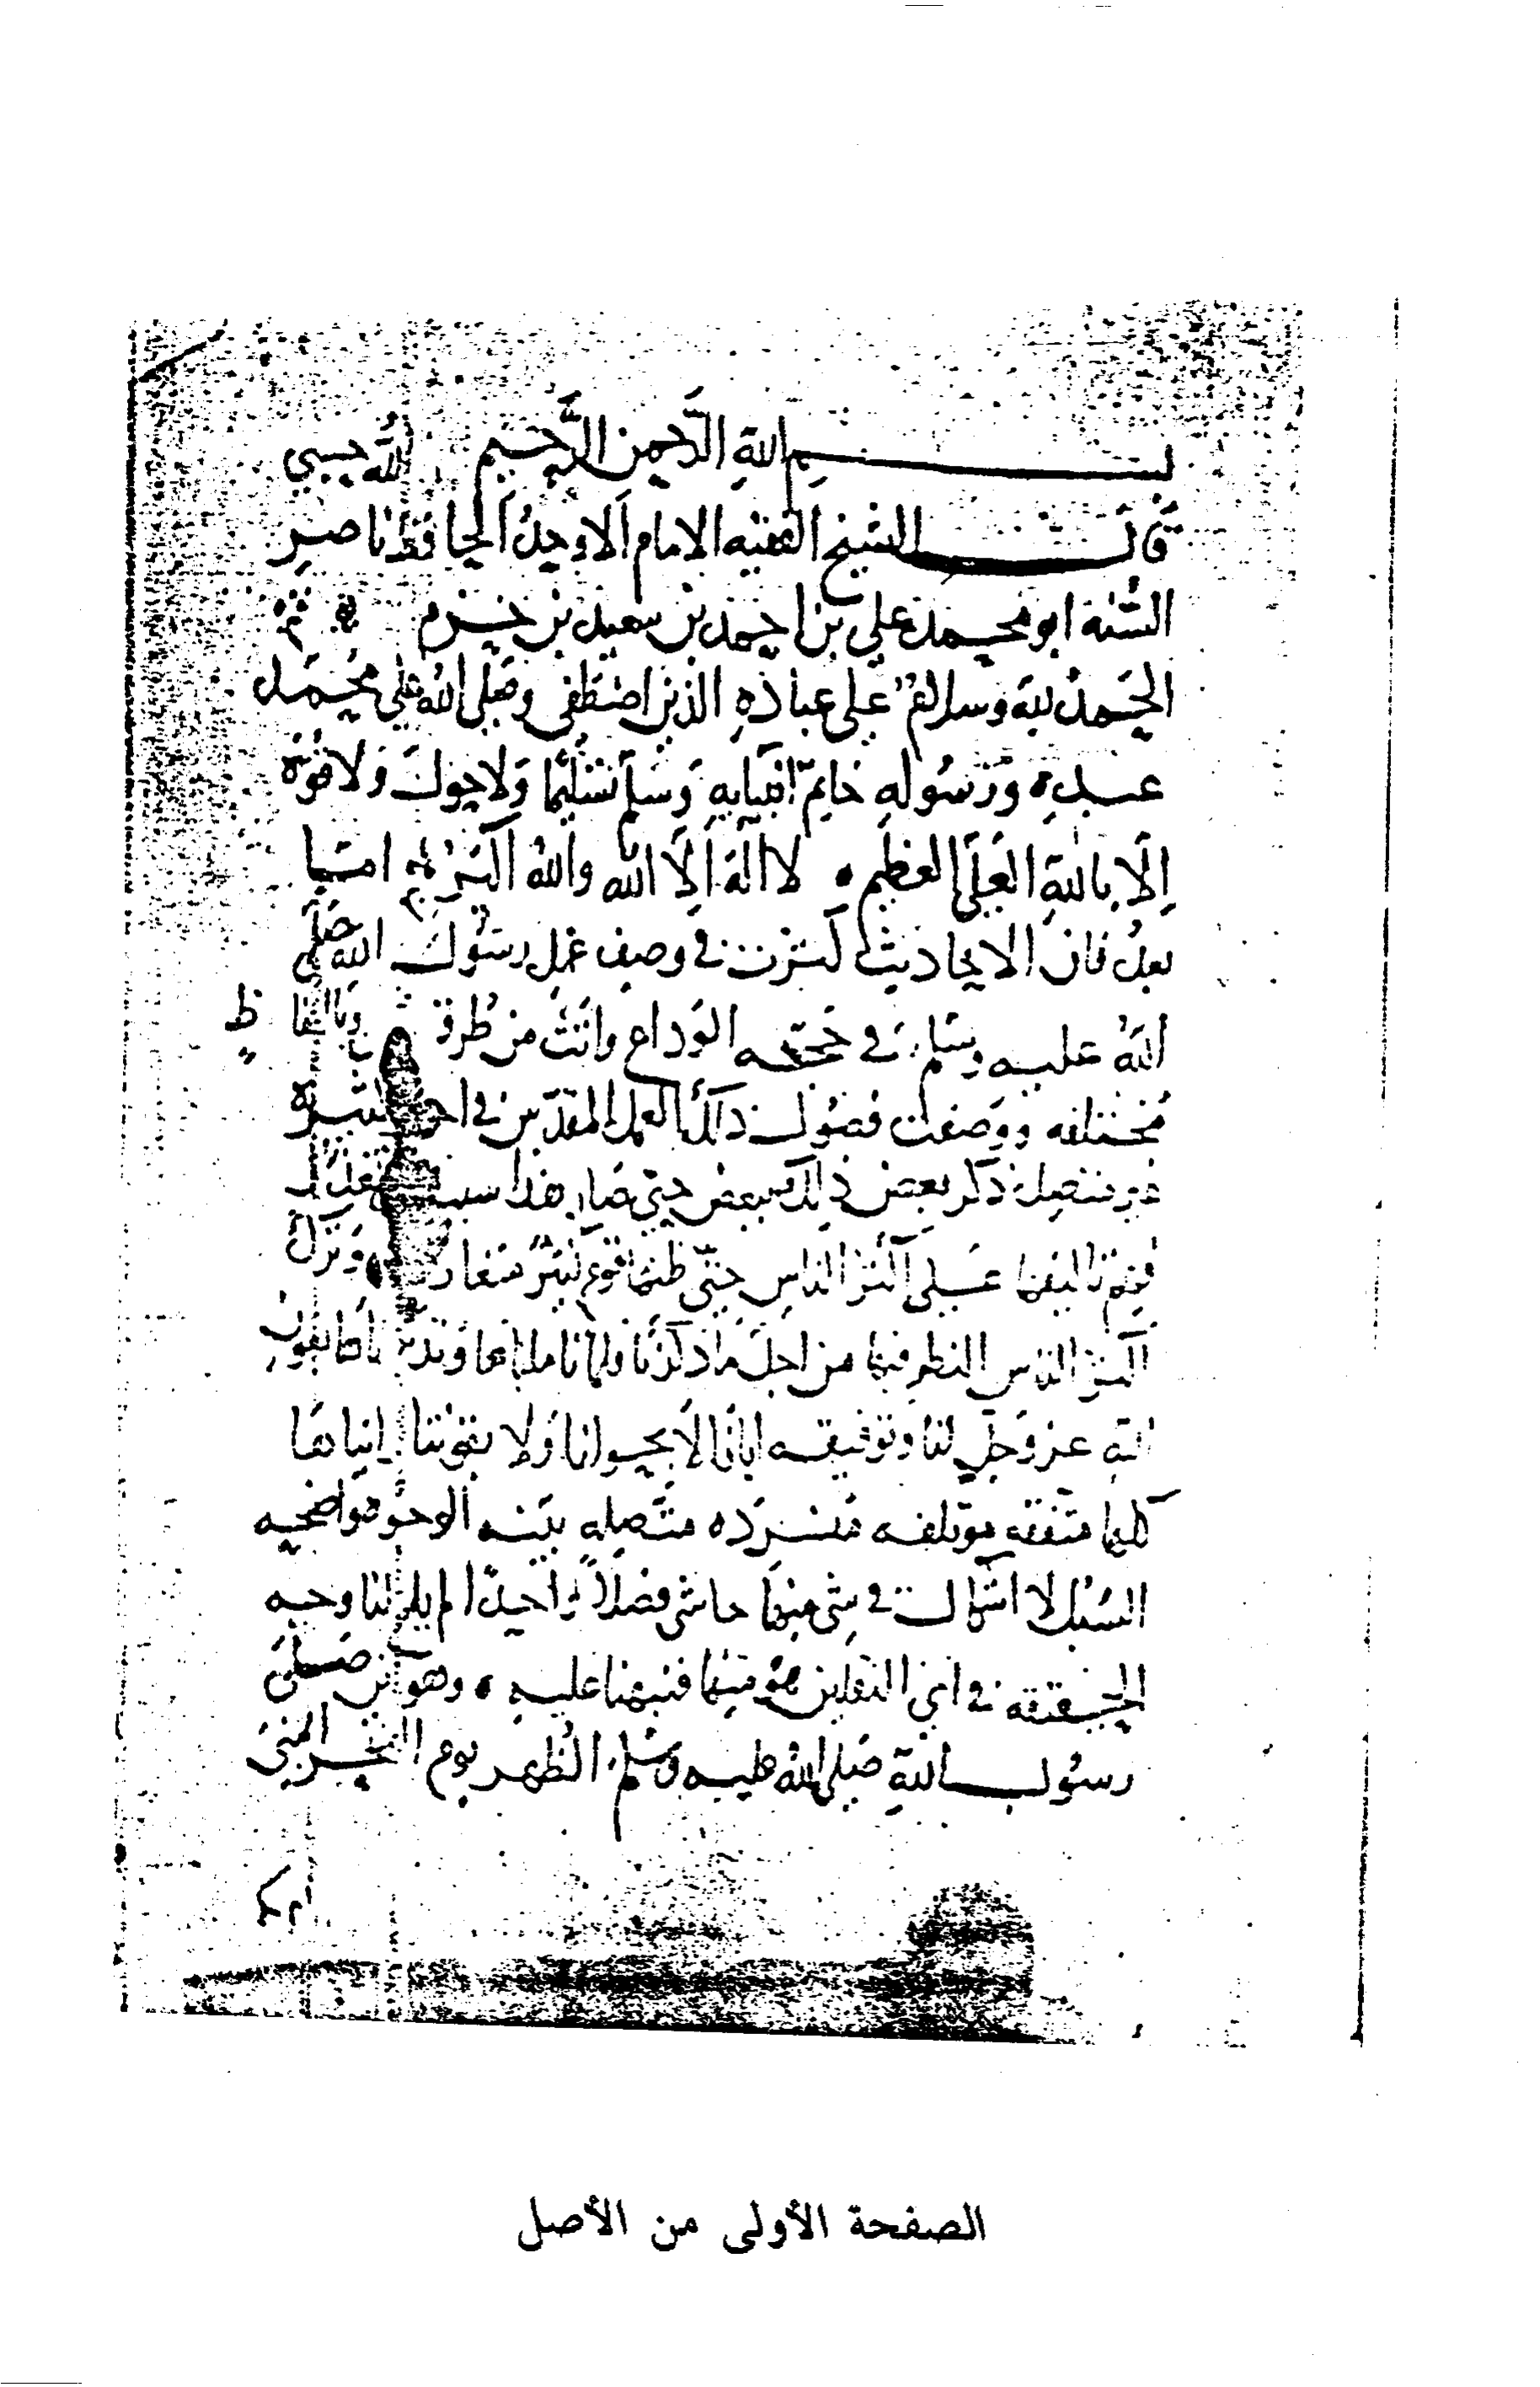 بسم الله الرحمن الرحيم الله حسبي
قال الشيخ الفقيه الامام الاوحد الحافظ ناصر
السنة ابو محمد علي بن احمد بن سعيد بن حزم
الحمد لله وسلام على عباده الذين اصطفى وصلى الله على محمد
عبده ورسوله خاتم انبيايه وسلم تسليما ولا حول ولا قوة
إلا بالله العلي العظيم لا اله الا الله والله اكبر اما
بعد فان الاحاديث كثرت في وصف عمل رسول الله صلى
الله عليه وسلم في حجته الوداع واتت من طرق وبالفاظ
مختلفه ووصفت فصول ذلك العمل المقدس في
غير متصل ذكر بعض ذلك ببعض حتى صار هذا سببا
فهم تاليفها على اكثر الناس حتى ظنها قوم كثير متعارضة وترك
اكثر الناس النظر فيها من اجل ما ذكرنا فلما تاملناها وتدبرناها بعون
الله عز وجل لنا وتوفيقه ايانا لا بحولنا ولا بقوتنا رايناها
كلها متفقه موتلفه منسرده متصله بينه الوجوه واضحه
السبل لا اشكال في شي منها حاشى فصلا واحدا لم يلح لنا وجه
الحقيقه في اي النقلين هو منها فنبهنا عليه وهو اين صلى
رسول الله صلى الله عليه وسلم الظهر يوم النحر ابمنى
ام بمكة
الصفحة الأولى من الأصل